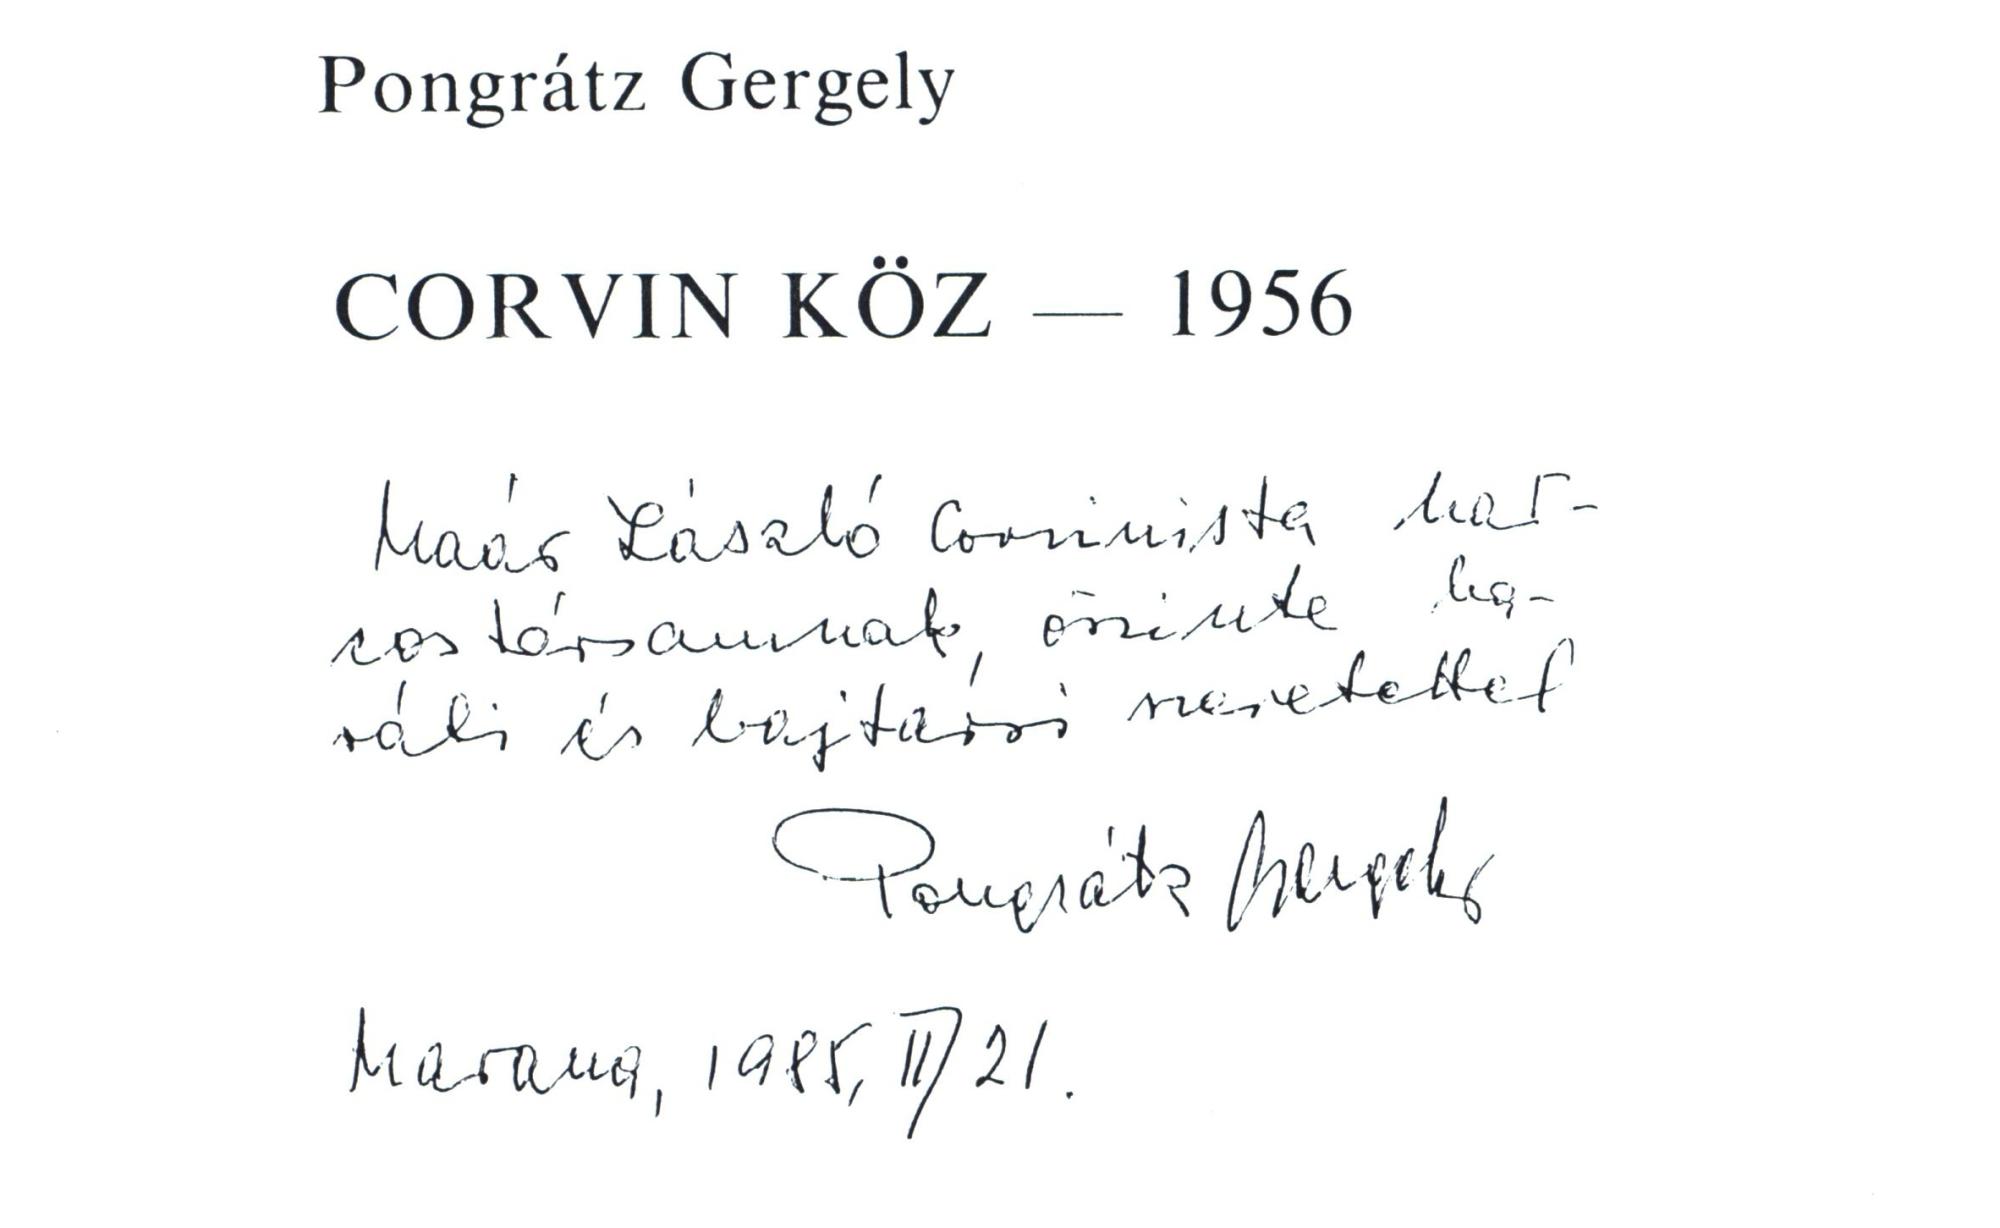 Pongrátz Gergely
CORVIN KÖZ — 1956
Maár László Corvinista har-
costársamnak, őszinte ba-
ráti és bajtársi szeretettel
Pongrátz Gergely
Marana, 1985, II/21.